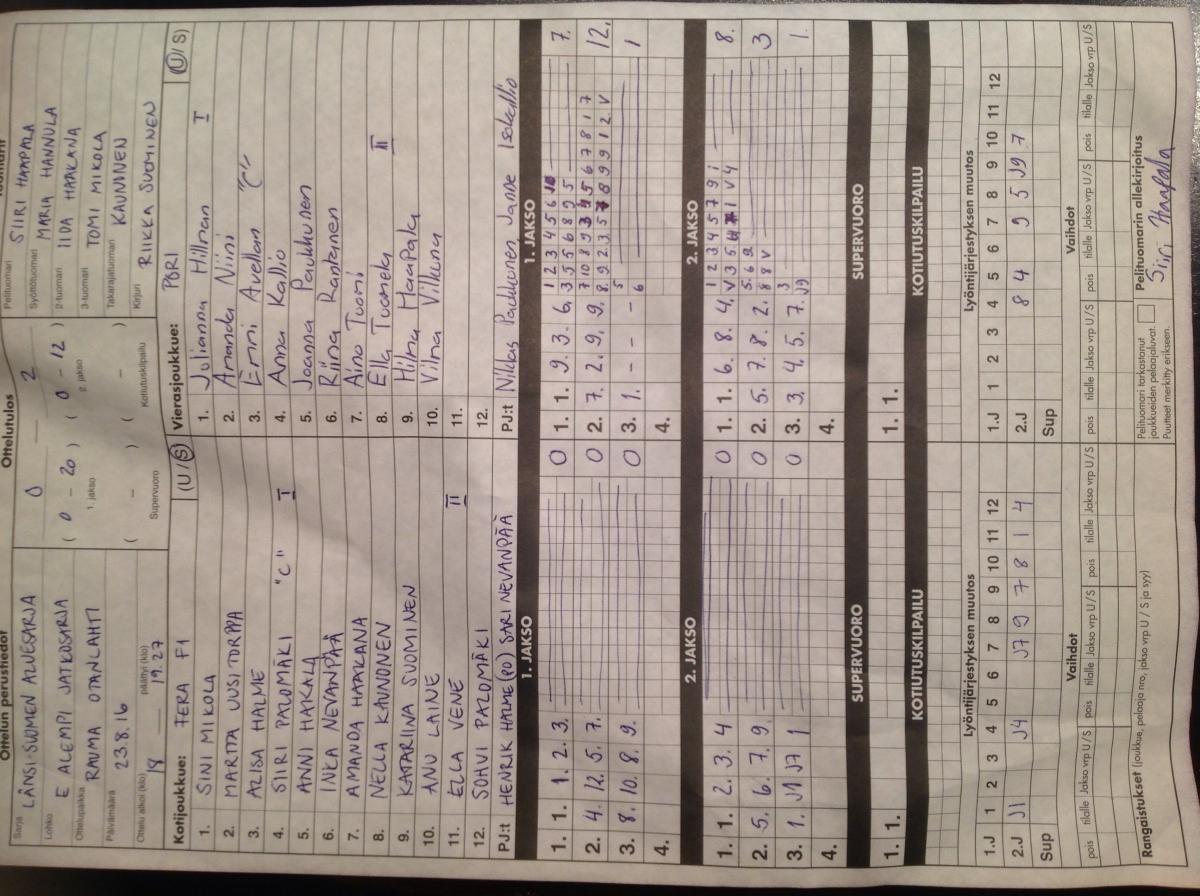 Ottelun perustiedot
Sarja LÄNSI-SUOMEN ALUESARJA
Lohko E ALEMPI JATKOSARJA
Ottelupaikka RAUMA OTANLAHTI
Päivämäärä 23.8.16
Ottelu alkoi (klo) 18 päättyi (klo) 19.27
Ottelutulos
0 2
( 0 - 20 ) ( 0 - 12 )
1. jakso 2. jakso
( - ) ( - )
Supervuoro Kotiutuskilpailu
Pelituomari SIIRI HAAPALA
Syöttötuomari MARIA HANNULA
2-tuomari IIDA HAAKANA
3-tuomari TOMI MIKOLA
Takarajatuomari KAUNONEN
Kirjuri RIIKKA SUOMINEN
Kotijoukkue: FERA F1 (U/S)
1. SINI MIKOLA
2. MARTTA UUSITORPPA
3. ALISA HALME
4. SIIRI PALOMÄKI "C" I
5. ANNI HAKALA
6. INKA NEVANPÄÄ
7. AMANDA HAAKANA
8. NELLA KAUNONEN
9. KATARIINA SUOMINEN
10. ANU LAINE
11. ELLA VENE II
12. SOHVI PALOMÄKI
PJ:t HENRIK HALME (PO) SARI NEVANPÄÄ
Vierasjoukkue: PORI (U/S)
1. Julianna Hillman I
2. Amanda Niini
3. Emmi Avellan "C"
4. Anna Kallio
5. Joanna Paukkunen
6. Riina Rantanen
7. Aino Tuomi
8. Ella Tuomela II
9. Hilma Haapala
10. Vilma Vilkuna
11.
12.
PJ:t Niklas Paukkunen Janne Isokallio
1. JAKSO 1. JAKSO
1. 1. 1. 2. 3. 0
2. 4. 12. 5. 7. 0
3. 8. 10. 8. 9. 0
4.
1. 1. 9. 3. 6. 7.
2. 7. 2. 9. 9. 12.
3. 1. - - - 1
4.
2. JAKSO 2. JAKSO
1. 1. 2. 3. 4 0
2. 5. 6. 7. 9. 0
3. 1. J1 J7 1 0
4.
1. 1. 6. 8. 4. 8.
2. 5. 7. 8. 2. 3
3. 3. 4. 5. 7. 1.
4.
SUPERVUORO SUPERVUORO
1. 1. 1. 1.
KOTIUTUSKILPAILU KOTIUTUSKILPAILU
Lyöntijärjestyksen muutos Lyöntijärjestyksen muutos
1.J 1 2 3 4 5 6 7 8 9 10 11 12 1.J 1 2 3 4 5 6 7 8 9 10 11 12
2.J J1 J4 J7 9 7 8 1 4 2.J 8 4 9 5 J9 7
Sup Sup
Vaihdot Vaihdot
pois tilalle Jakso vrp U/S pois tilalle Jakso vrp U/S pois tilalle Jakso vrp U/S pois tilalle Jakso vrp U/S pois tilalle Jakso vrp U/S pois tilalle Jakso vrp U/S
Rangaistukset (joukkue, pelaaja nro, jakso vrp U / S ja syy)
Pelituomari tarkastanut
joukkueiden pelaajaluvat.
Puutteet merkitty erikseen.
Pelituomarin allekirjoitus
Siiri Haapala